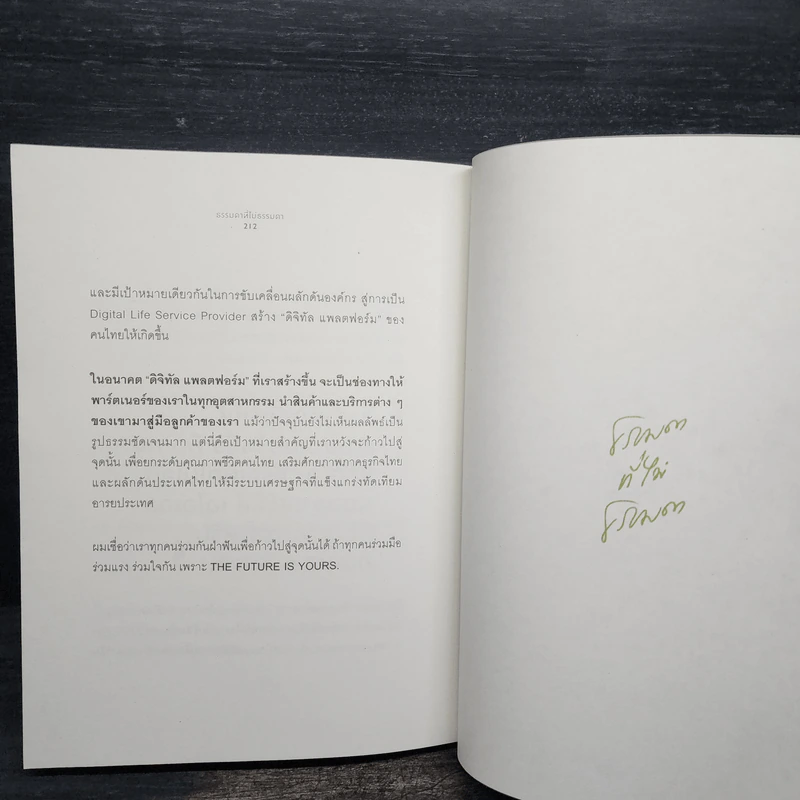 ธรรมดาที่ไม่ธรรมดา
212
และมีเป้าหมายเดียวกันในการขับเคลื่อนผลักดันองค์กร สู่การเป็น
Digital Life Service Provider สร้าง “ดิจิทัล แพลตฟอร์ม” ของ
คนไทยให้เกิดขึ้น
ในอนาคต “ดิจิทัล แพลตฟอร์ม” ที่เราสร้างขึ้น จะเป็นช่องทางให้
พาร์ตเนอร์ของเราในทุกอุตสาหกรรม นำสินค้าและบริการต่าง ๆ
ของเขามาสู่มือลูกค้าของเรา แม้ว่าปัจจุบันยังไม่เห็นผลลัพธ์เป็น
รูปธรรมชัดเจนมาก แต่นี่คือเป้าหมายสำคัญที่เราหวังจะก้าวไปสู่
จุดนั้น เพื่อยกระดับคุณภาพชีวิตคนไทย เสริมศักยภาพภาคธุรกิจไทย
และผลักดันประเทศไทยให้มีระบบเศรษฐกิจที่แข็งแกร่งทัดเทียม
อารยประเทศ
ผมเชื่อว่าเราทุกคนร่วมกันฝ่าฟันเพื่อก้าวไปสู่จุดนั้นได้ ถ้าทุกคนร่วมมือ
ร่วมแรง ร่วมใจกัน เพราะ THE FUTURE IS YOURS.
ธรรมดา
ที่ไม่
ธรรมดา